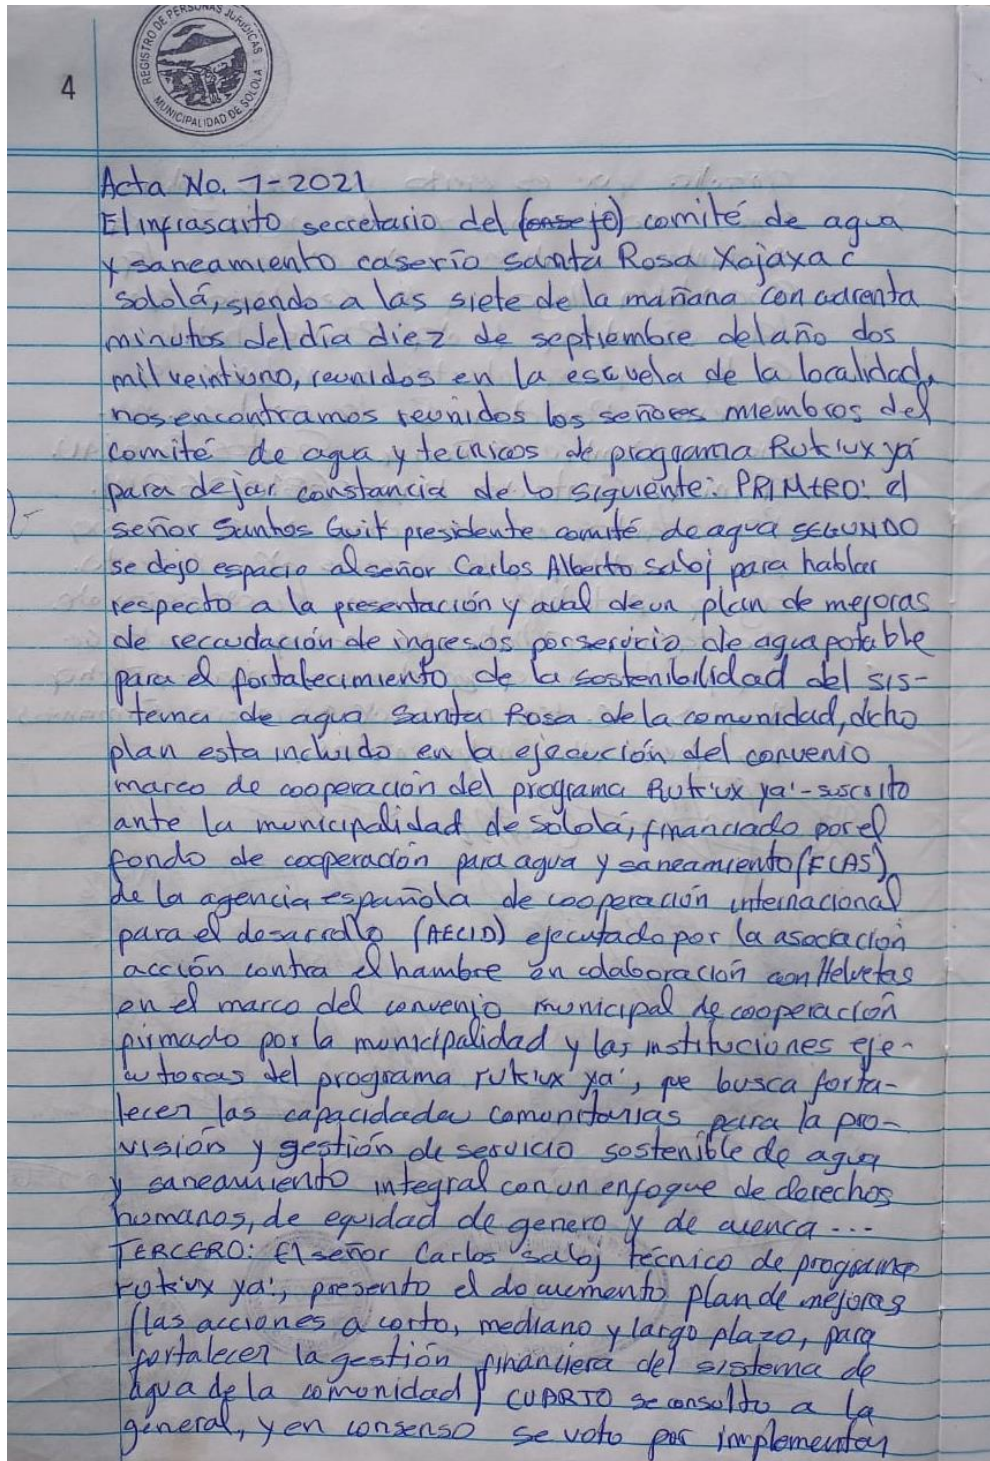 REGISTRO DE PERSONAS JURIDICAS
MUNICIPALIDAD DE SOLOLA
4
Acta No. 7-2021
El infrascrito secretario del (consejo) comité de agua
y saneamiento caserío Santa Rosa Xajaxac
Sololá, siendo a las siete de la mañana con cuarenta
minutos del día diez de septiembre del año dos
mil veintiuno, reunidos en la escuela de la localidad,
nos encontramos reunidos los señores miembros del
comité de agua y tecnicos de programa Rukiux ya
para dejar constancia de lo siguiente: PRIMERO: el
señor Santos Guit presidente comité de agua SEGUNDO
se dejo espacio al señor Carlos Alberto Saloj para hablar
respecto a la presentación y aval de un plan de mejoras
de recaudación de ingresos por servicio de agua potable
para el fortalecimiento de la sostenibilidad del sis-
tema de agua Santa Rosa de la comunidad, dicho
plan esta incluido en la ejecución del convenio
marco de cooperación del programa Ruk'ux ya' - suscrito
ante la municipalidad de Sololá, financiado por el
fondo de cooperación para agua y saneamiento (FCAS)
de la agencia española de cooperación internacional
para el desarrollo (AECID) ejecutado por la asociación
acción contra el hambre en colaboración con Helvetas
en el marco del convenio municipal de cooperación
firmado por la municipalidad y las instituciones eje-
cutoras del programa rukiux ya', que busca forta-
lecer las capacidades comunitarias para la pro-
visión y gestión de servicio sostenible de agua
y saneamiento integral con un enfoque de derechos
humanos, de equidad de genero y de cuenca ...
TERCERO: El señor Carlos Saloj técnico de programa
rukiux ya', presento el documento plan de mejoras
(las acciones a corto, mediano y largo plazo, para
fortalecer la gestión financiera del sistema de
agua de la comunidad) CUARTO se consulto a la
general, y en consenso se voto por implementar